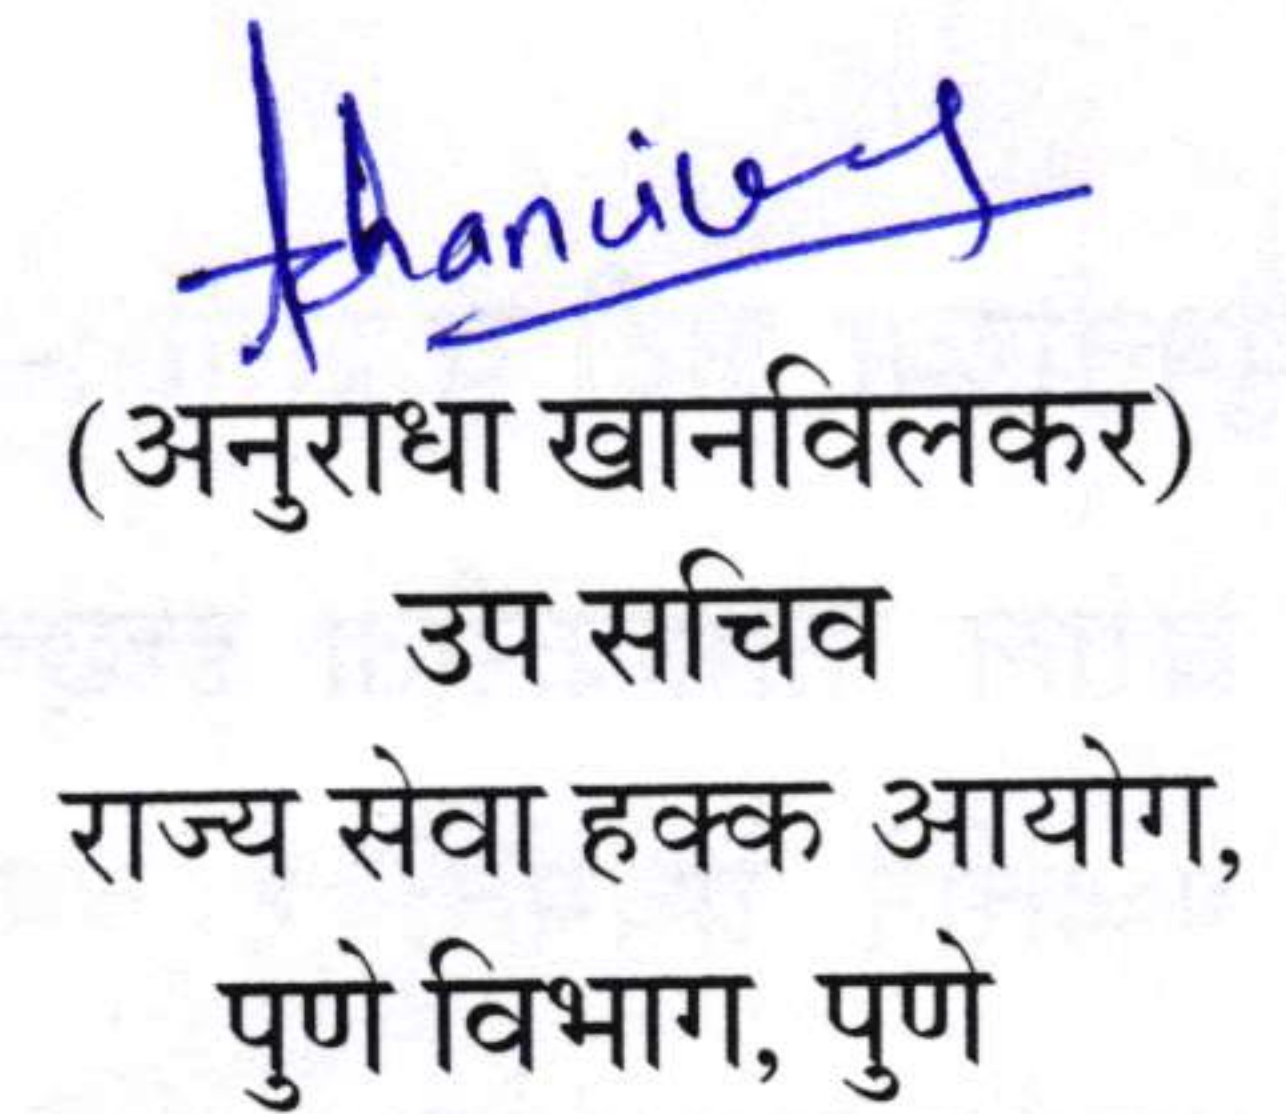 (अनुराधा खानविलकर)
उप सचिव
राज्य सेवा हक्क आयोग,
पुणे विभाग, पुणे